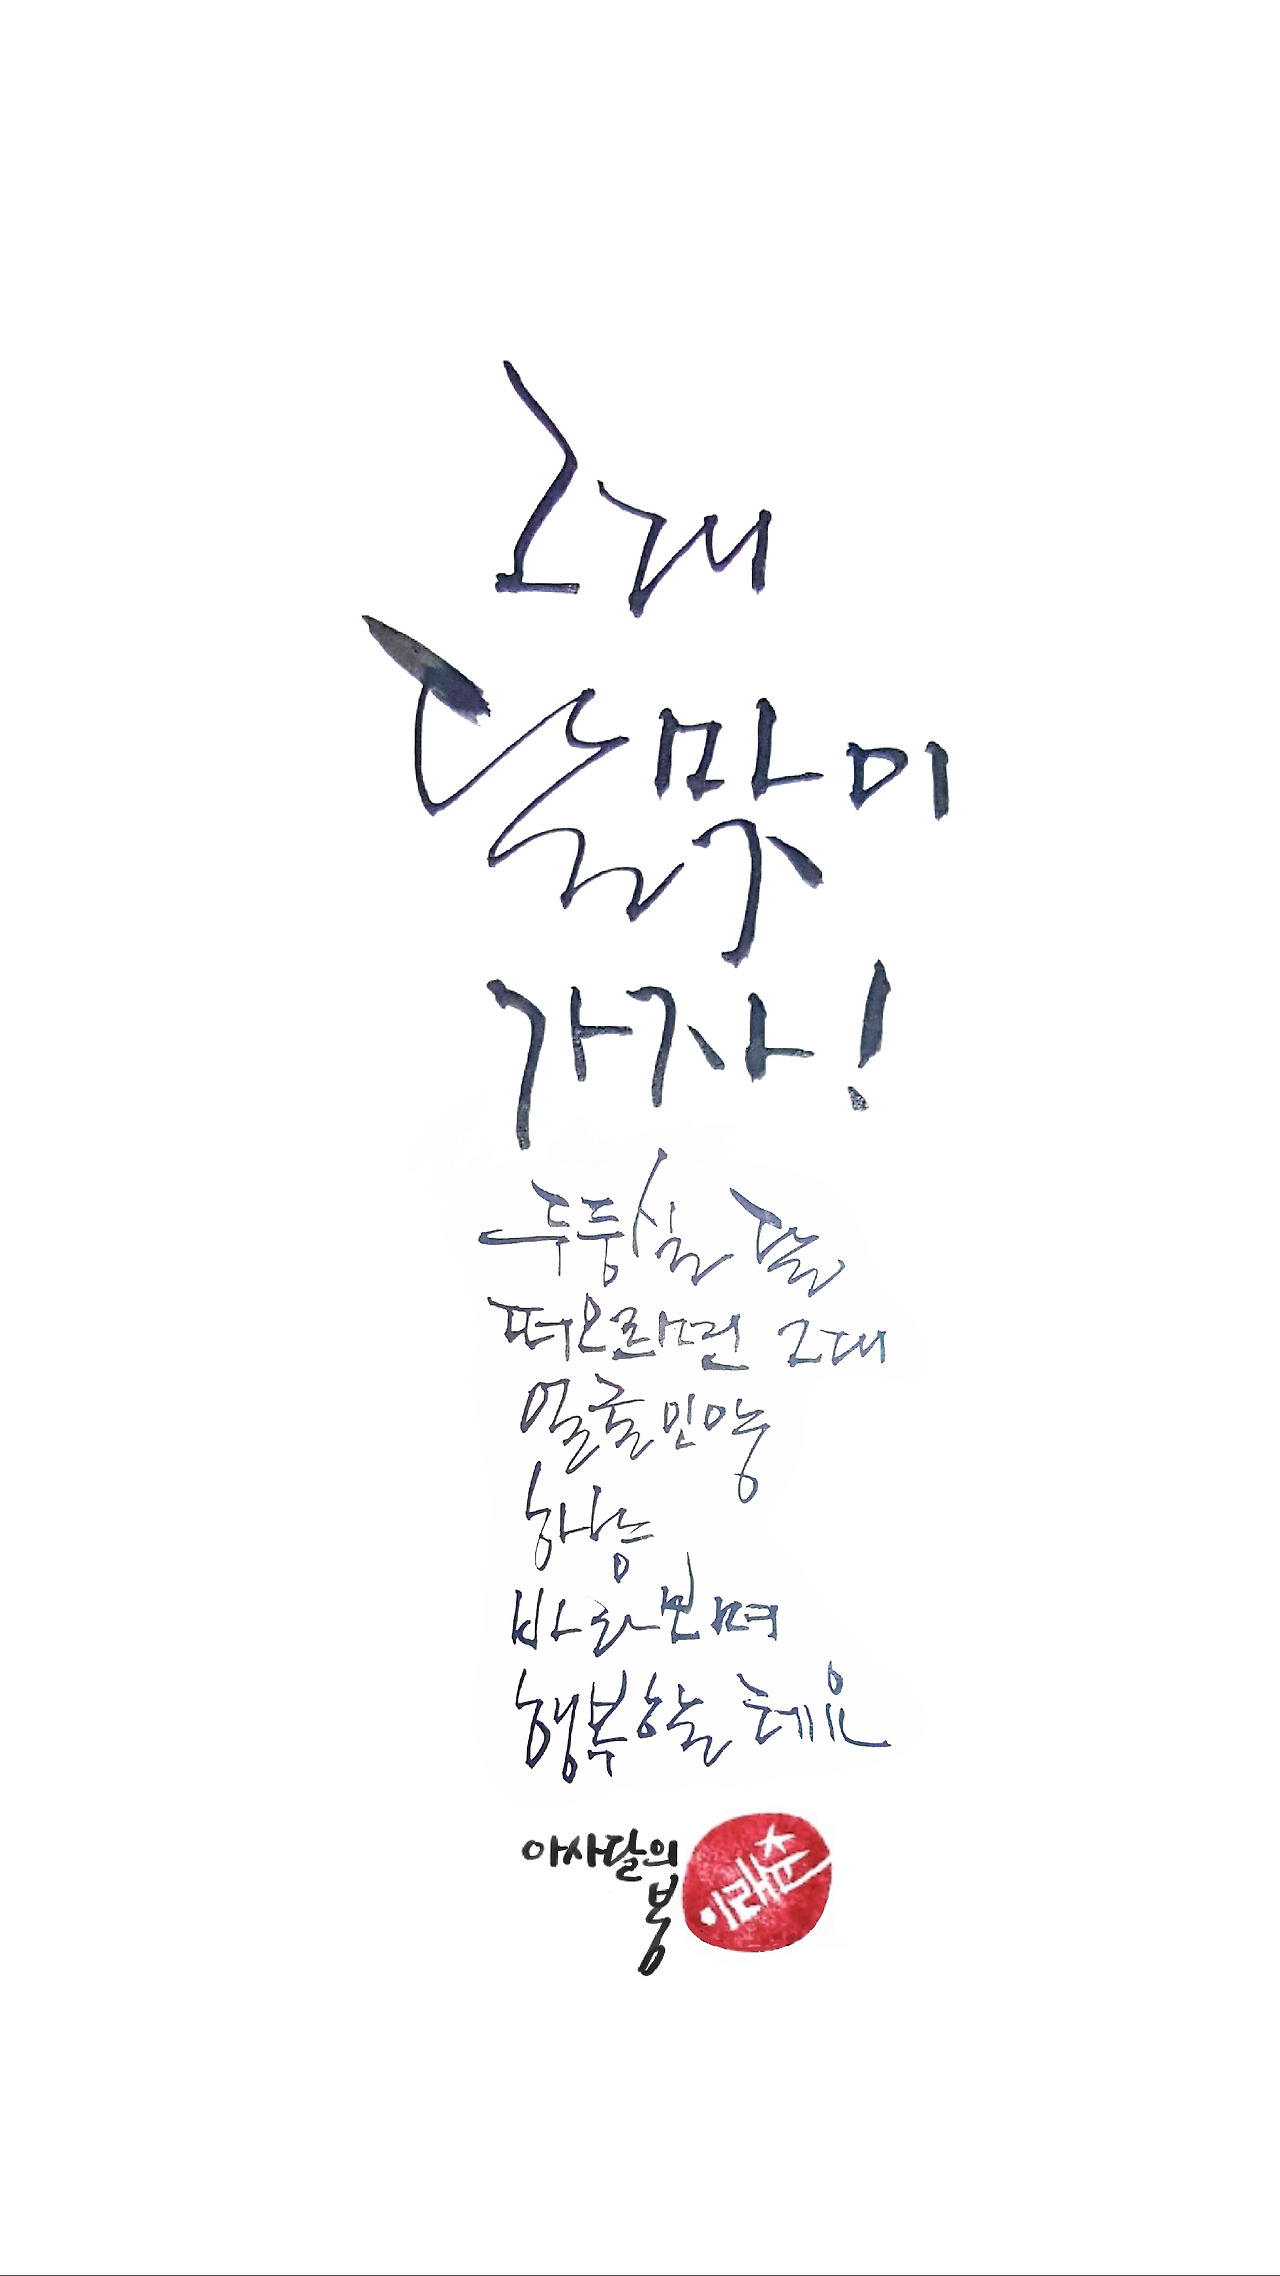 그대
달맞이
가자!
두둥실 달
떠오르면 그대
얼굴인양
하냥
바라보며
행복할 테요
아사달의
봄
이래춘